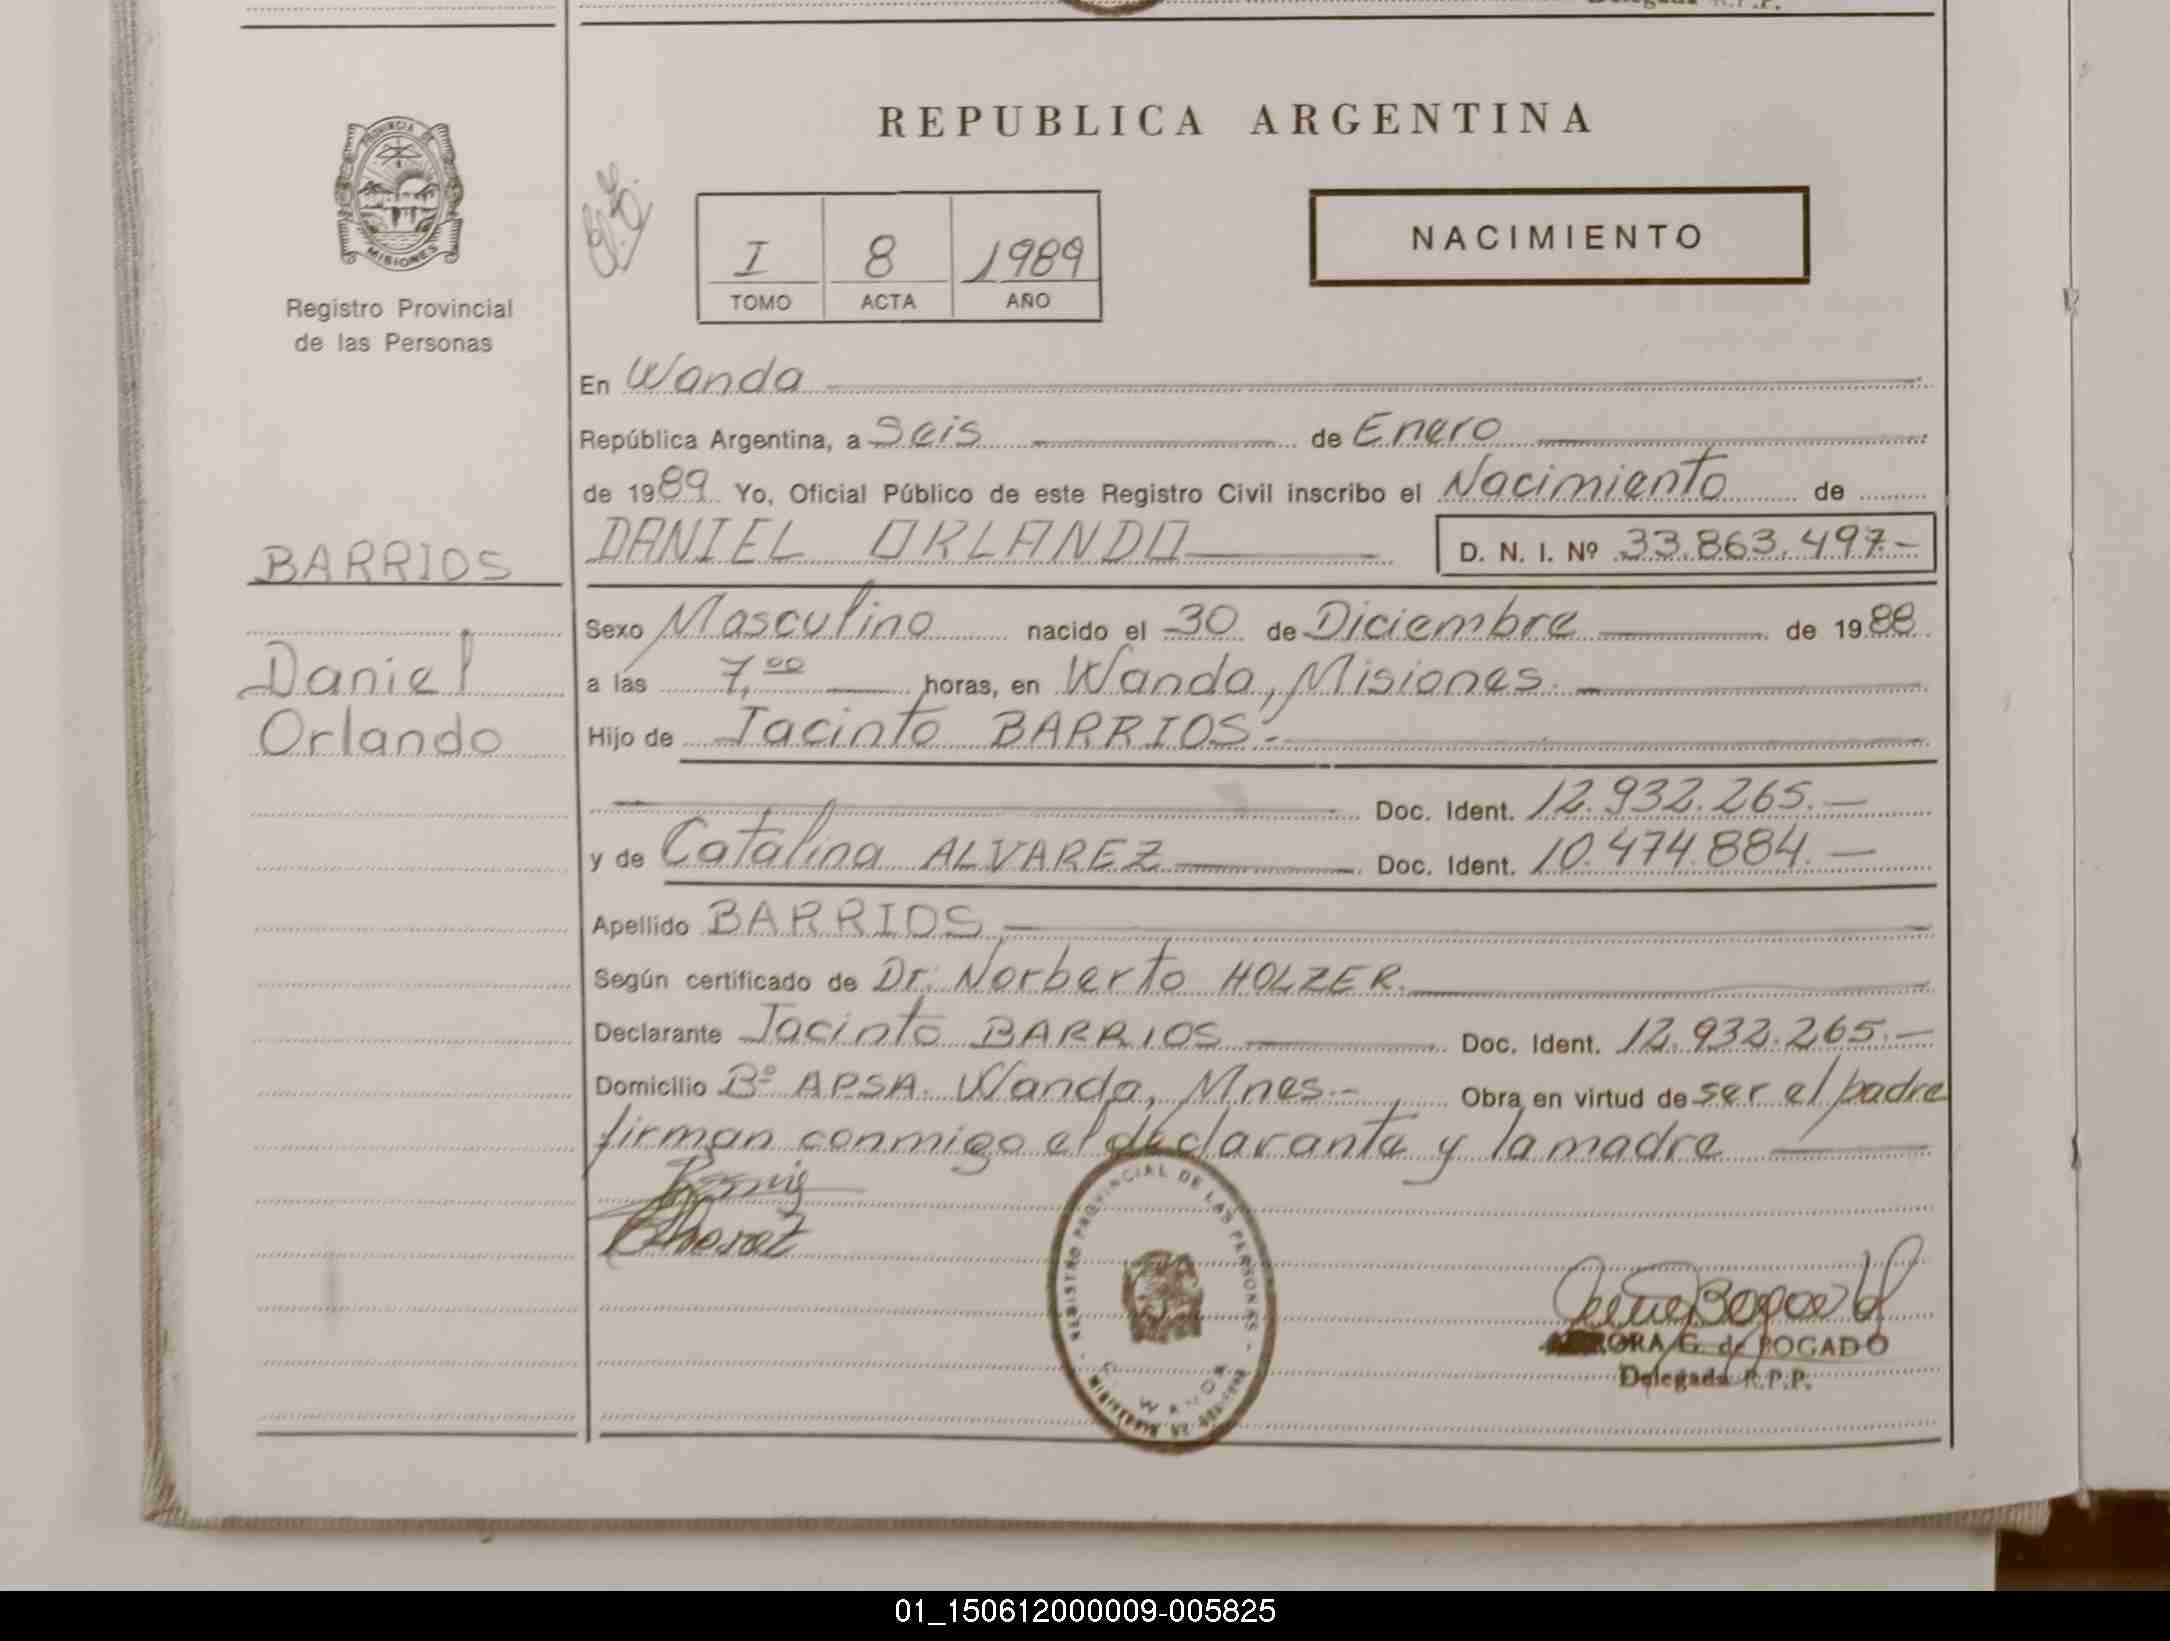 REPUBLICA ARGENTINA
PROVINCIA DE
MISIONES
Registro Provincial
de las Personas
I 8 1989
TOMO ACTA AÑO
NACIMIENTO
En Wanda
República Argentina, a Seis de Enero
de 1989 Yo, Oficial Público de este Registro Civil inscribo el Nacimiento de
BARRIOS
DANIEL ORLANDO D. N. I. Nº 33.863.497.-
Sexo Masculino nacido el 30 de Diciembre de 1988
Daniel
a las 7,00 horas, en Wanda, Misiones.
Orlando
Hijo de Jacinto BARRIOS.-
Doc. Ident. 12.932.265.-
y de Catalina ALVAREZ Doc. Ident. 10.474.884.-
Apellido BARRIOS
Según certificado de Dr. Norberto HOLZER.
Declarante Jacinto BARRIOS Doc. Ident. 12.932.265.-
Domicilio Bº APSA. Wanda, Mnes.- Obra en virtud de ser el padre
firman conmigo el declarante y la madre
REGISTRO PROVINCIAL DE LAS PERSONAS
G. de BOGADO
Delegada R.P.P.
01_150612000009-005825